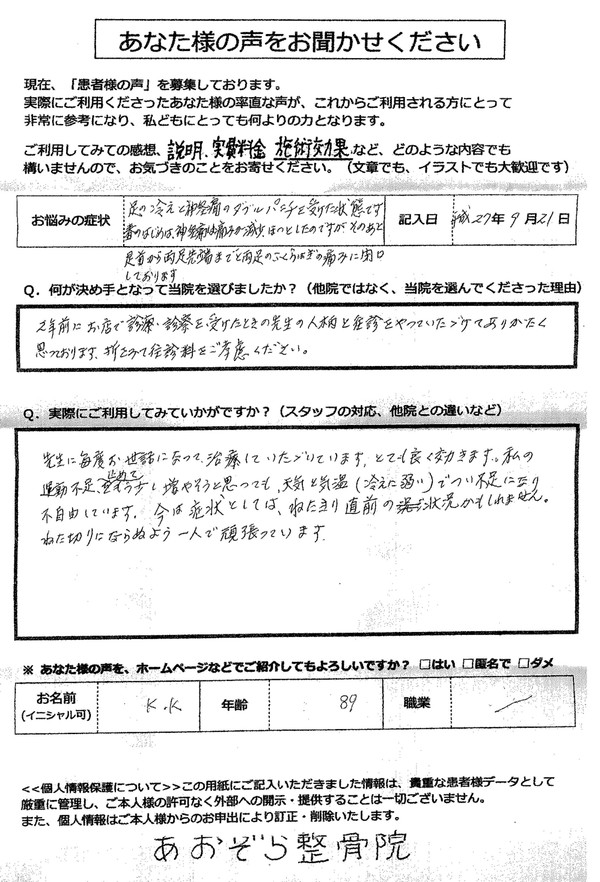 あなた様の声をお聞かせください
現在、「患者様の声」を募集しております。
実際にご利用くださったあなた様の率直な声が、これからご利用される方にとって
非常に参考になり、私どもにとっても何よりの力となります。
ご利用してみての感想、説明、実費料金、施術効果、など、どのような内容でも
構いませんので、お気づきのことをお寄せください。（文章でも、イラストでも大歓迎です）
お悩みの症状
足の冷えと神経痛のダブルパンチを受けた状態です
春のはじめは、神経痛は痛みが減少、ほっとしたのですが、そのあと
足首から両足先端までと両足のふくらはぎの痛みに閉口
しております
記入日 平成27年9月21日
Q．何が決め手となって当院を選びましたか？（他院ではなく、当院を選んでくださった理由）
2年前にお店で診療、診察を受けたときの先生の人柄と往診をやっていただけてありがたく
思っております、折をみて往診料をご考慮ください。
Q．実際にご利用してみていかがですか？（スタッフの対応、他院との違いなど）
先生に毎度お世話になって、治療していただいています。とても良く効きます。私の
運動不足、止めて、もう少し増やそうと思っても、天気と気温（冷えに弱い）でつい不足になり
不自由しています。今は症状としては、ねたきり直前の状況かもしれません。
ねた切りにならぬよう一人で頑張っています。
※ あなた様の声を、ホームページなどでご紹介してもよろしいですか？ □はい □匿名で □ダメ
お名前
（イニシャル可）
K.K
年齢
89
職業
<<個人情報保護について>>この用紙にご記入いただきました情報は、貴重な患者様データとして
厳重に管理し、ご本人様の許可なく外部への開示・提供することは一切ございません。
また、個人情報はご本人様からのお申出により訂正・削除いたします。
あおぞら整骨院